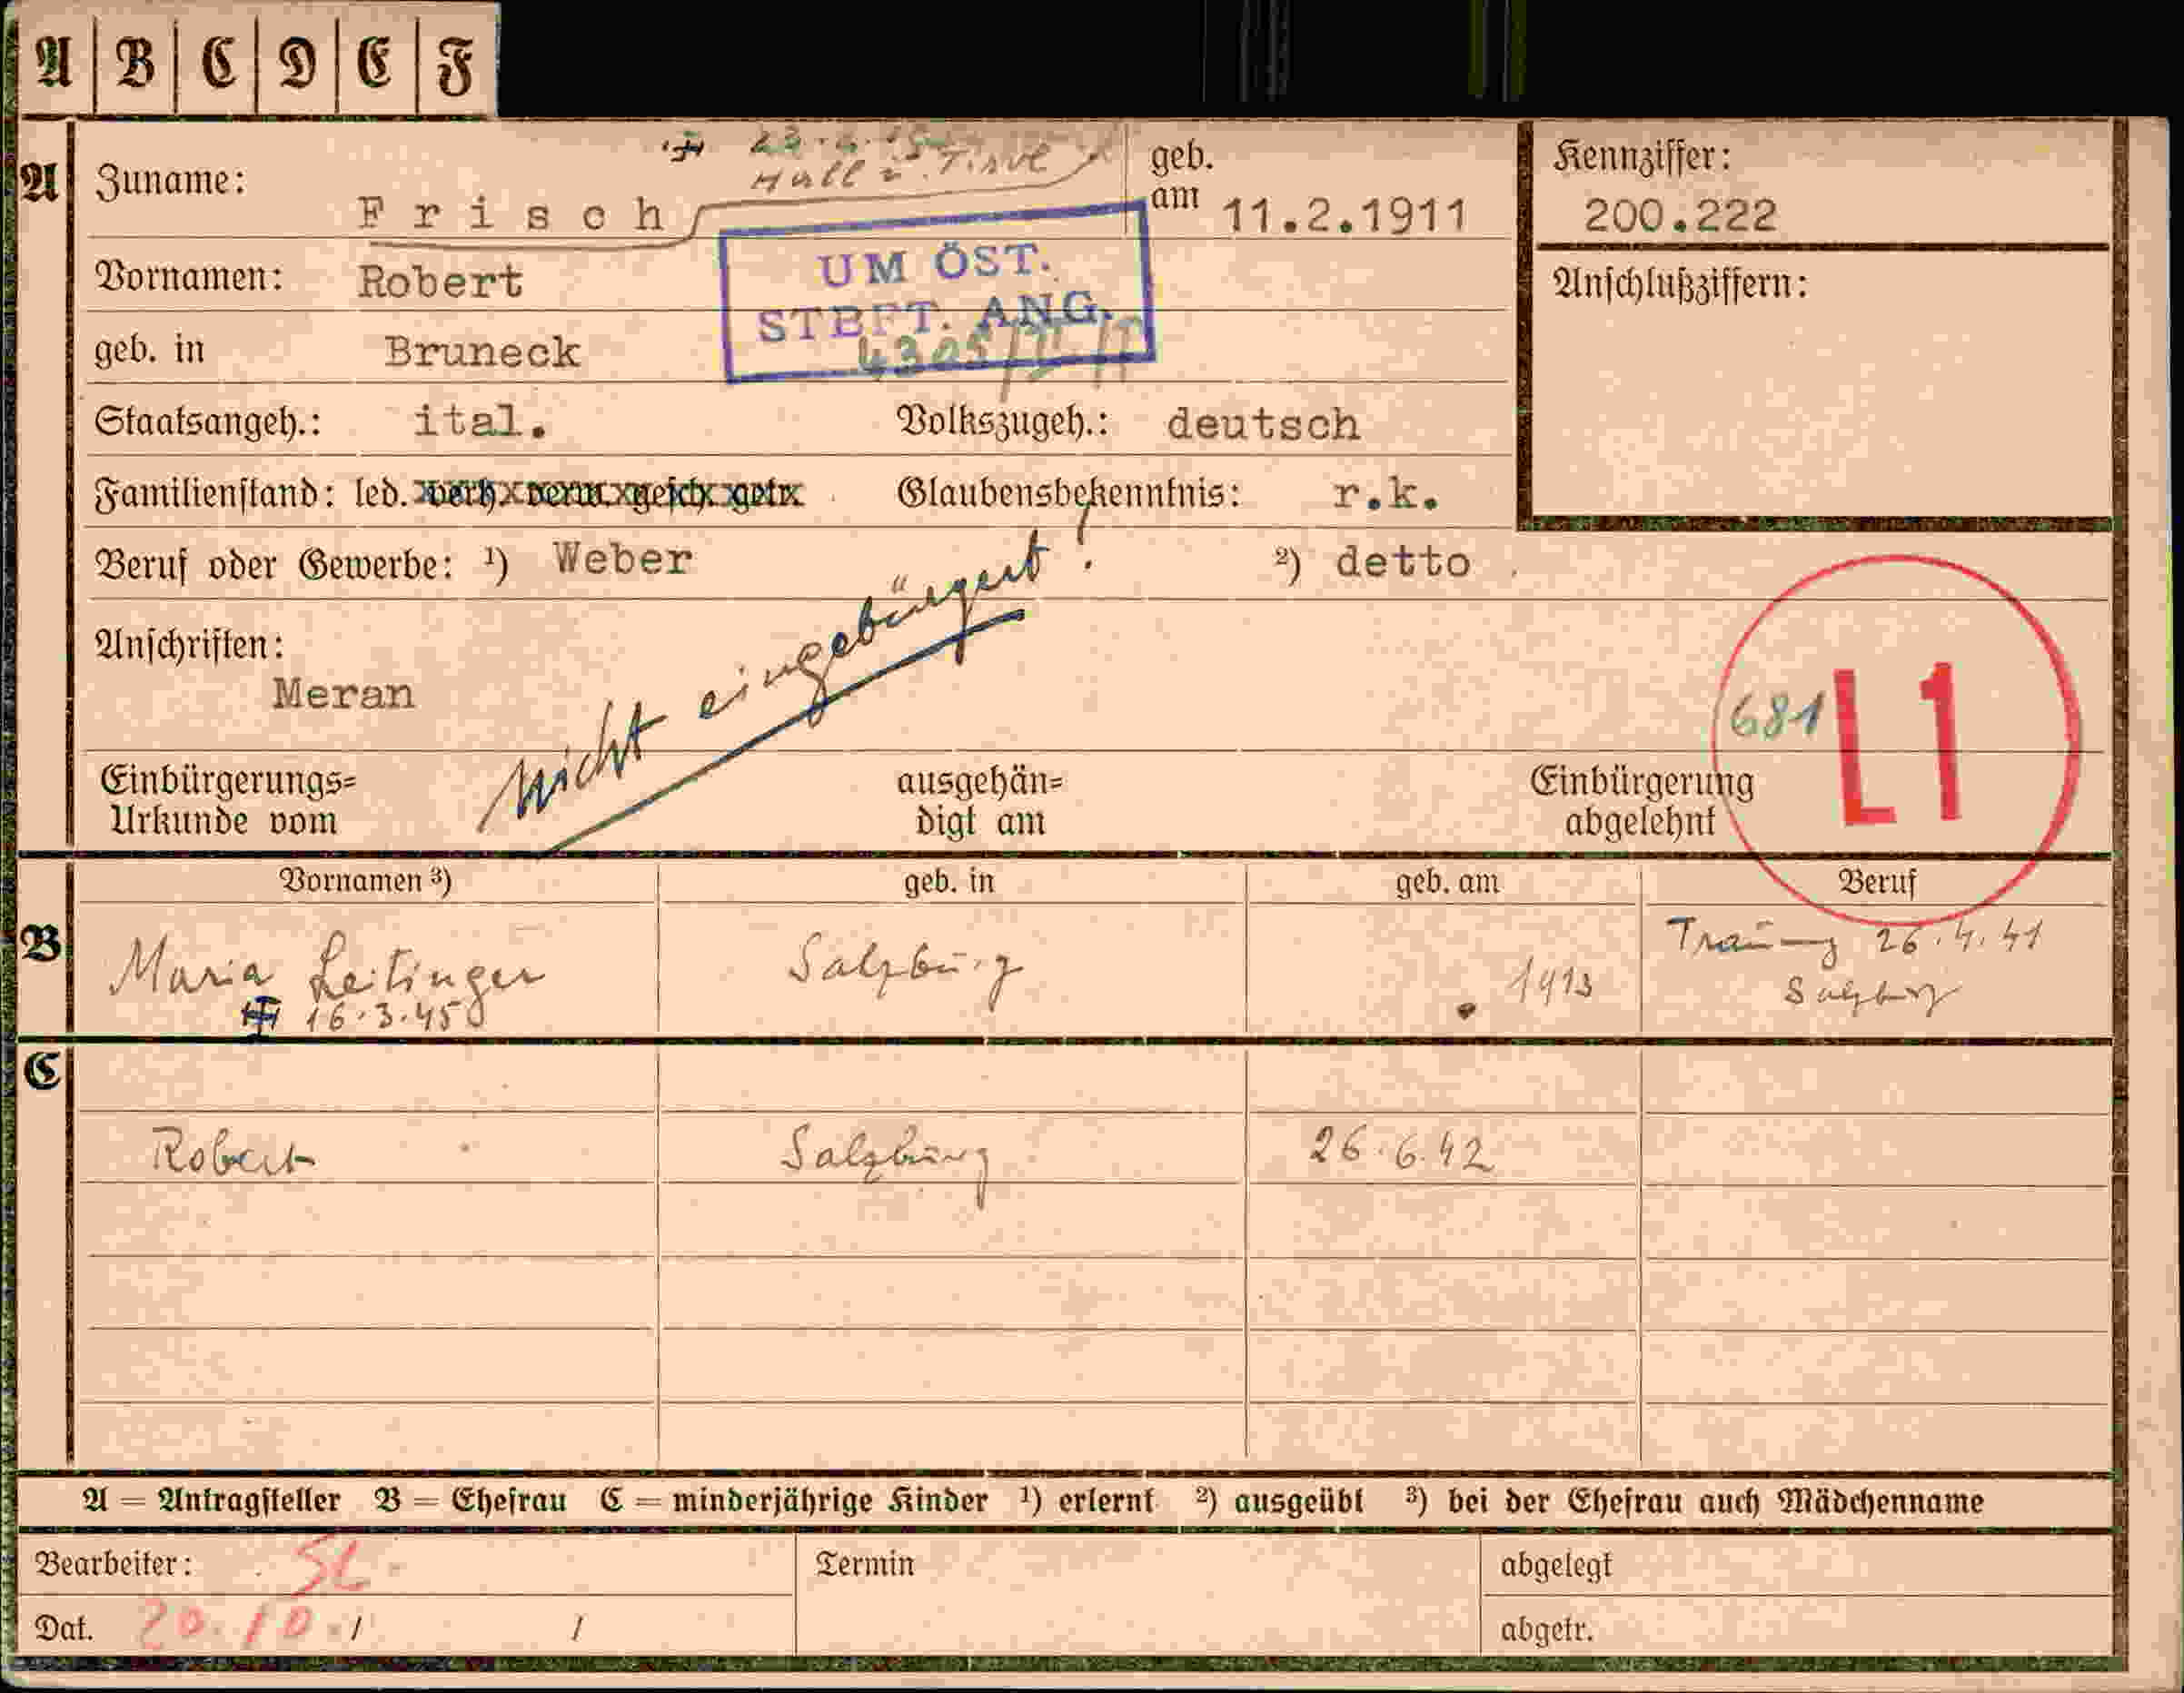 A B C D E F
Hall i. Tirol
A Zuname: Frisch geb. am 11.2.1911 Kennziffer: 200.222
UM ÖST. STBFT. ANG.
Vornamen: Robert Anschlußziffern:
geb. in Bruneck
Staatsangeh.: ital. Volkszugeh.: deutsch
Familienstand: led. verh. verw. gesch. getr. Glaubensbekenntnis: r.k.
Beruf oder Gewerbe: 1) Weber 2) detto
nicht eingebürgert!
Anschriften:
Meran
681 L1
Einbürgerungs= ausgehän= Einbürgerung
Urkunde vom digt am abgelehnt
Vornamen 3) geb. in geb. am Beruf
B Maria Leitinger Salzburg 1913 Trauung 26.4.41
16.3.45 Salzburg
C
Robert Salzburg 26.6.42
A = Antragsteller B = Ehefrau C = minderjährige Kinder 1) erlernt 2) ausgeübt 3) bei der Ehefrau auch Mädchenname
Bearbeiter: Termin abgelegt
Dat. 20.10./ / abgetr.